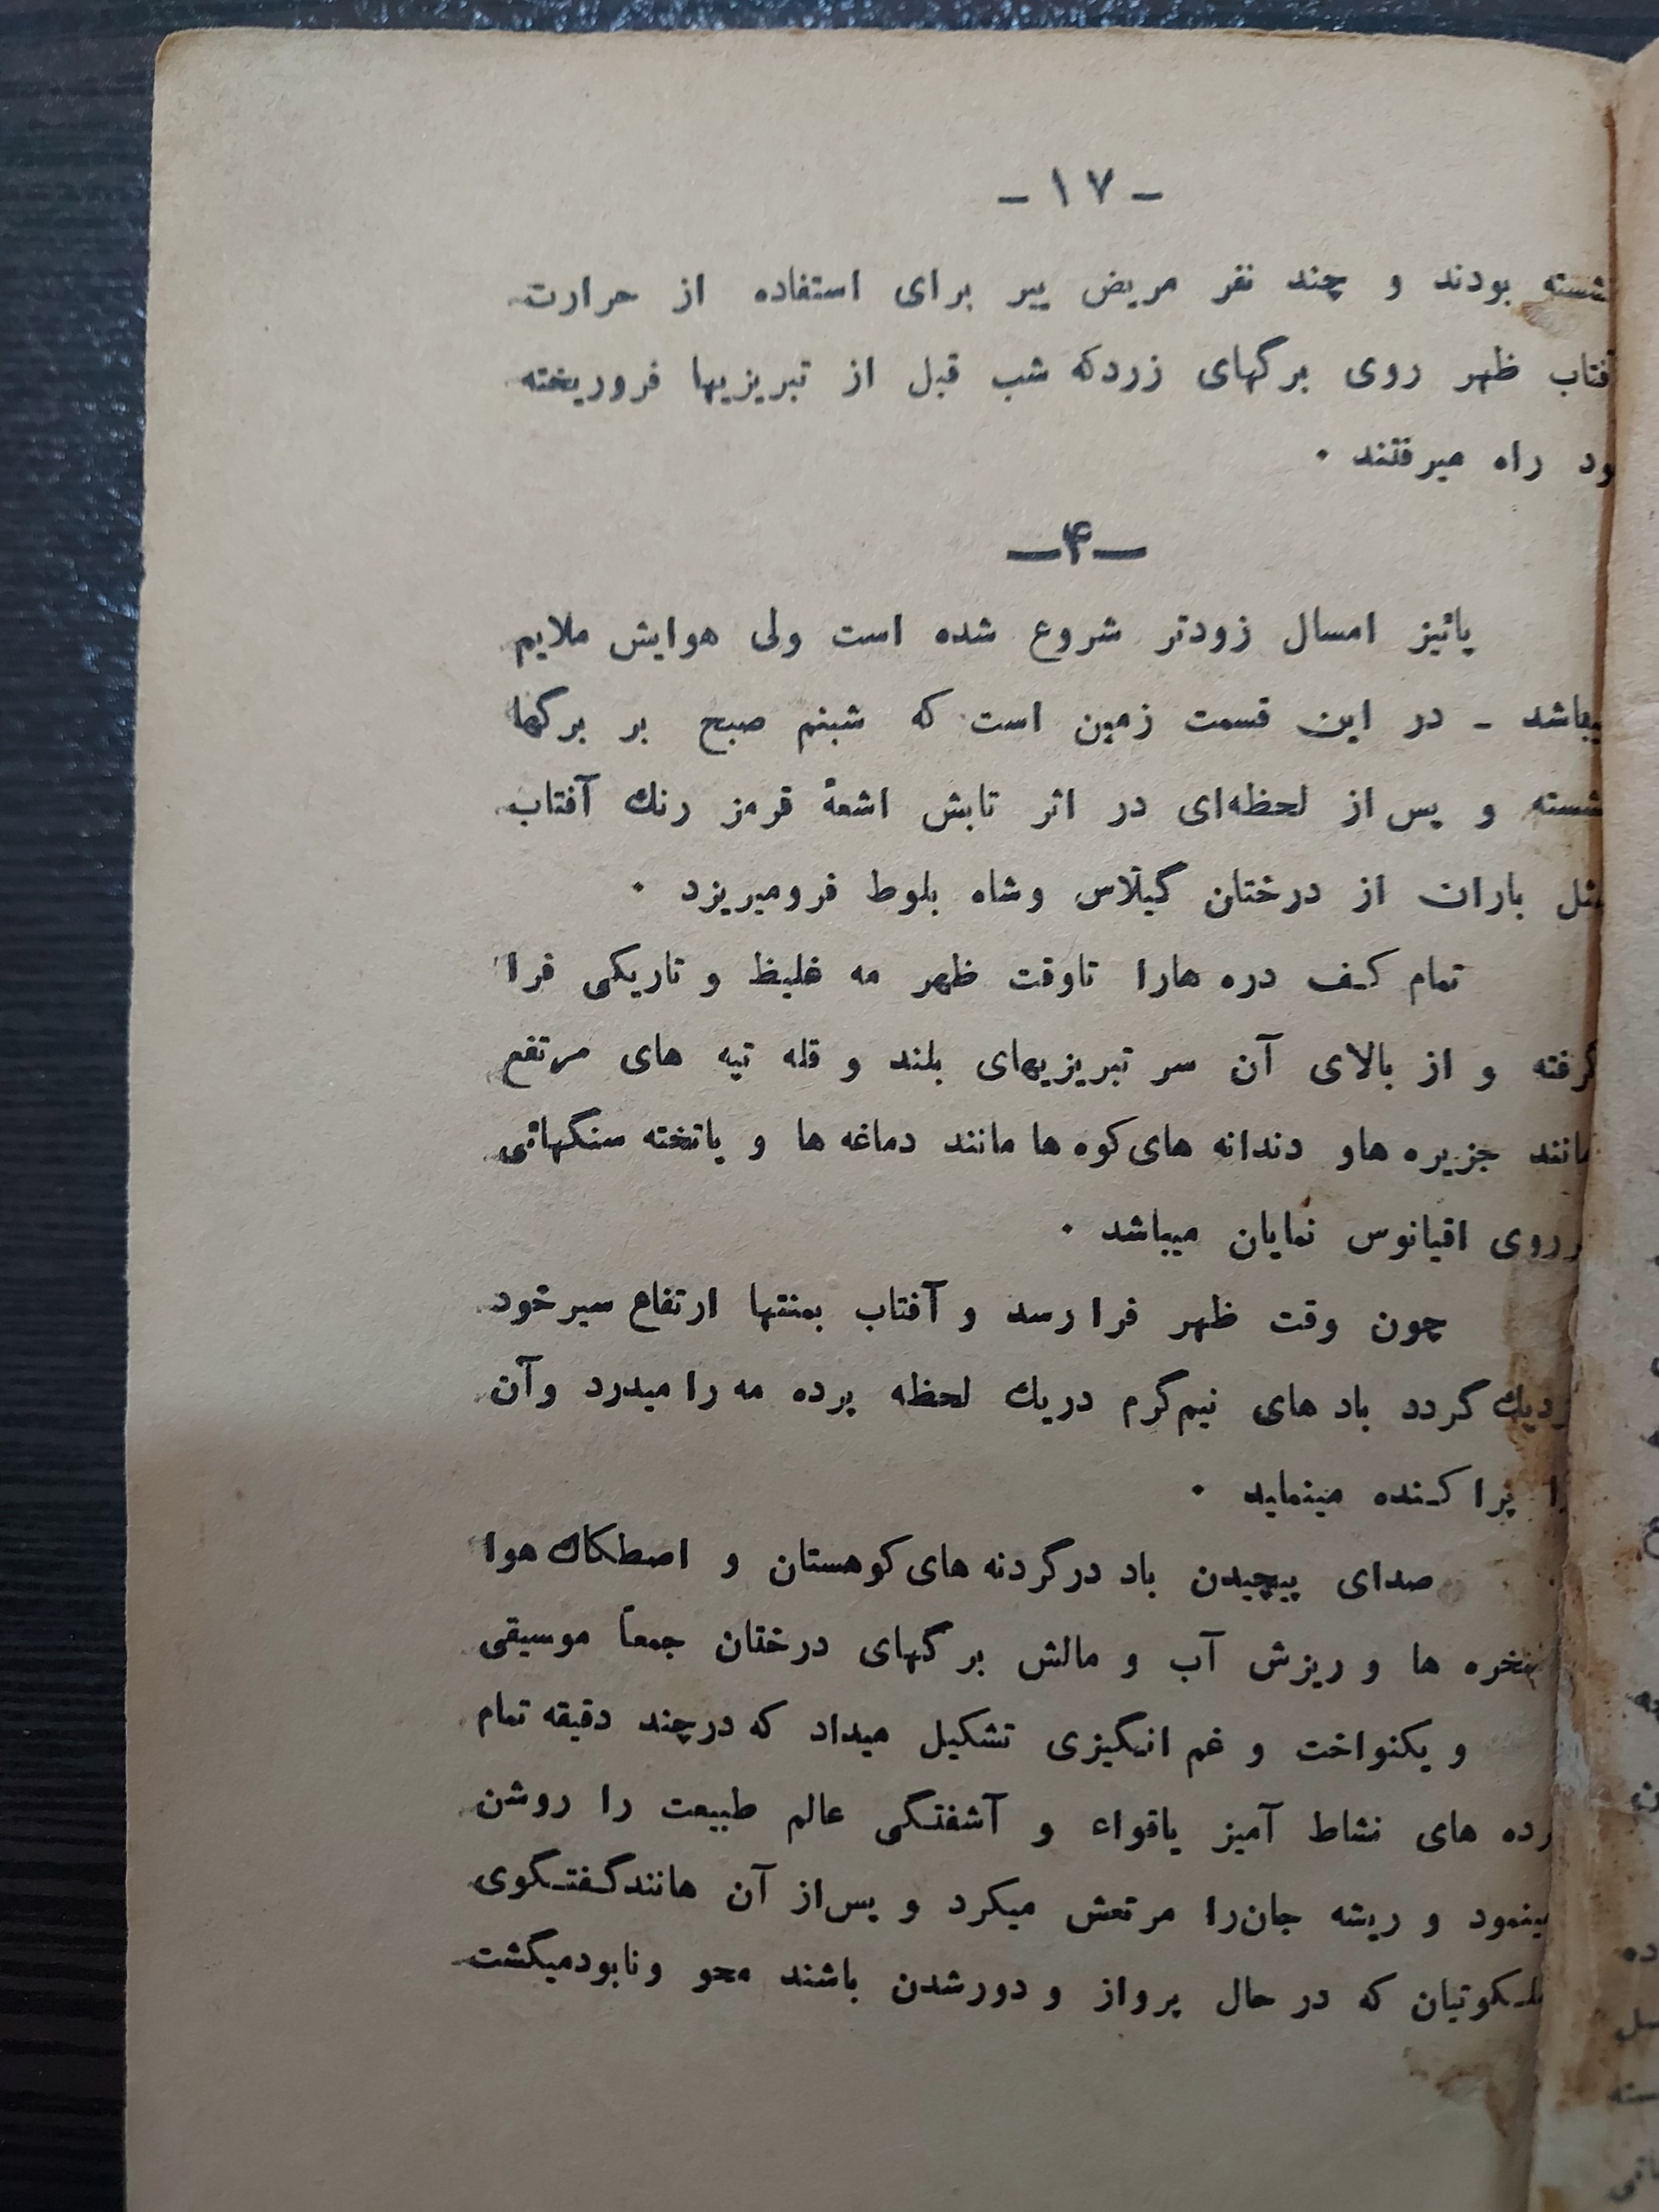 - ۱۷ -
بودند و چند نفر مریض پیر برای استفاده از حرارت
ظهر روی برگهای زردکه شب قبل از تبریزیها فروریخته
راه میرفتند .
—۴—
پائیز امسال زودتر شروع شده است ولی هوایش ملایم
- در این قسمت زمین است که شبنم صبح بر برگها
و پس از لحظه‌ای در اثر تابش اشعهٔ قرمز رنك آفتاب
باران از درختان گیلاس وشاه بلوط فرومیریزد .
تمام کف دره هارا تاوقت ظهر مه غلیظ و تاریکی فرا
گرفته و از بالای آن سر تبریزیهای بلند و قله تپه های مرتفع
مانند جزیره هاو دندانه های کوه ها مانند دماغه ها و یاتخته سنگهائی
روی اقیانوس نمایان میباشد .
چون وقت ظهر فرا رسد و آفتاب بمنتها ارتفاع سیرخود
گردد باد های نیم گرم دریك لحظه پرده مه را میدرد وآن
را پراکنده مینماید .
صدای پیچیدن باد درگردنه های کوهستان و اصطکاك هوا
ها و ریزش آب و مالش برگهای درختان جمعاً موسیقی
و یکنواخت و غم انگیزی تشکیل میداد که درچند دقیقه تمام
های نشاط آمیز یاقواء و آشفتگی عالم طبیعت را روشن
مینمود و ریشه جان‌را مرتعش میکرد و پس‌از آن مانندگفتگوی
ملکوتیان که در حال پرواز و دورشدن باشند محو ونابودمیگشت